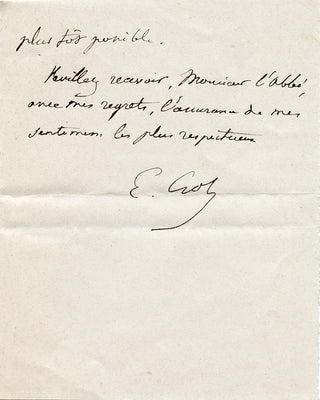 plus tôt possible.
Veuillez recevoir, Monsieur l'Abbé,
avec mes regrets, l'assurance de mes
sentimens les plus respectueux
E.